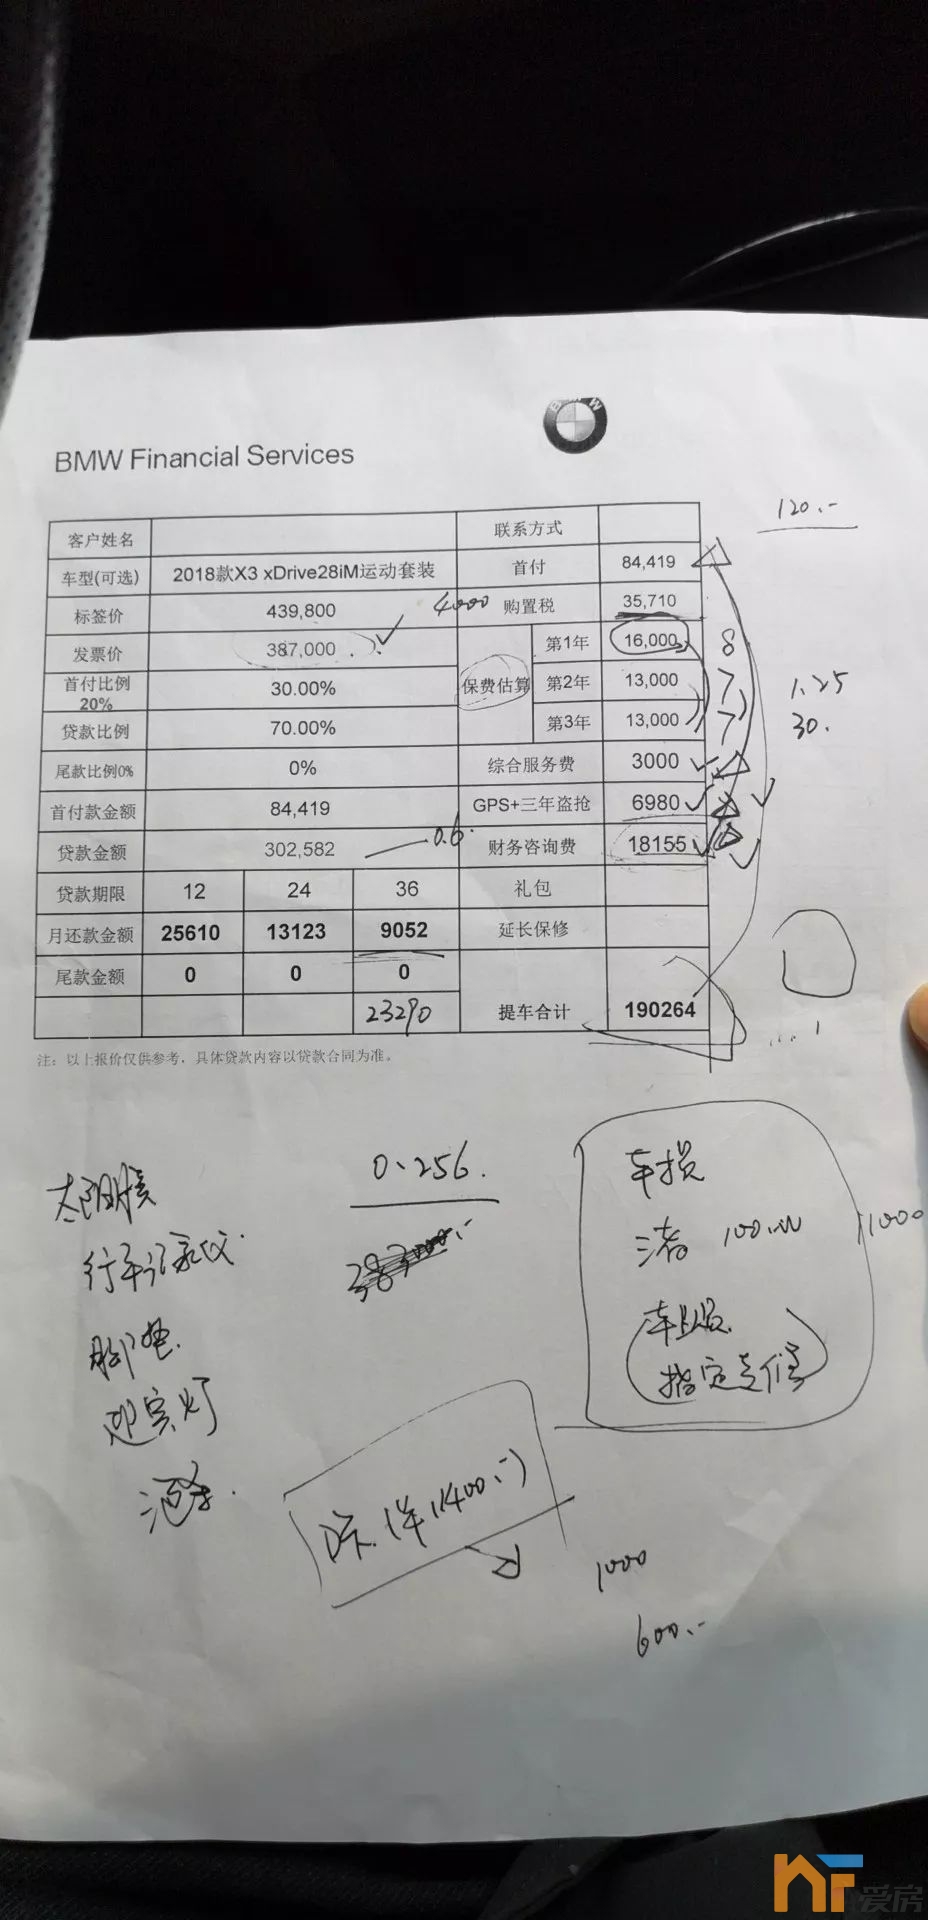 BMW
BMW Financial Services
120.-
客户姓名 联系方式
车型(可选) 2018款X3 xDrive28iM运动套装 首付 84,419
标签价 439,800 4000 购置税 35,710
发票价 387,000 保费估算 第1年 16,000 8
首付比例20% 30.00% 第2年 13,000 7 1.25
贷款比例 70.00% 第3年 13,000 7 30.
尾款比例0% 0% 综合服务费 3000
首付款金额 84,419 GPS+三年盗抢 6980
贷款金额 302,582 0.6 财务咨询费 18155
贷款期限 12 24 36 礼包
月还款金额 25610 13123 9052 延长保修
尾款金额 0 0 0
23290 提车合计 190264
注：以上报价仅供参考，具体贷款内容以贷款合同为准。
太阳膜
行车记录仪
脚垫
迎宾灯
0.256.
车损
三者 100.w 11000
指定专修
1年(1400.-)
1000
600.-
爱房